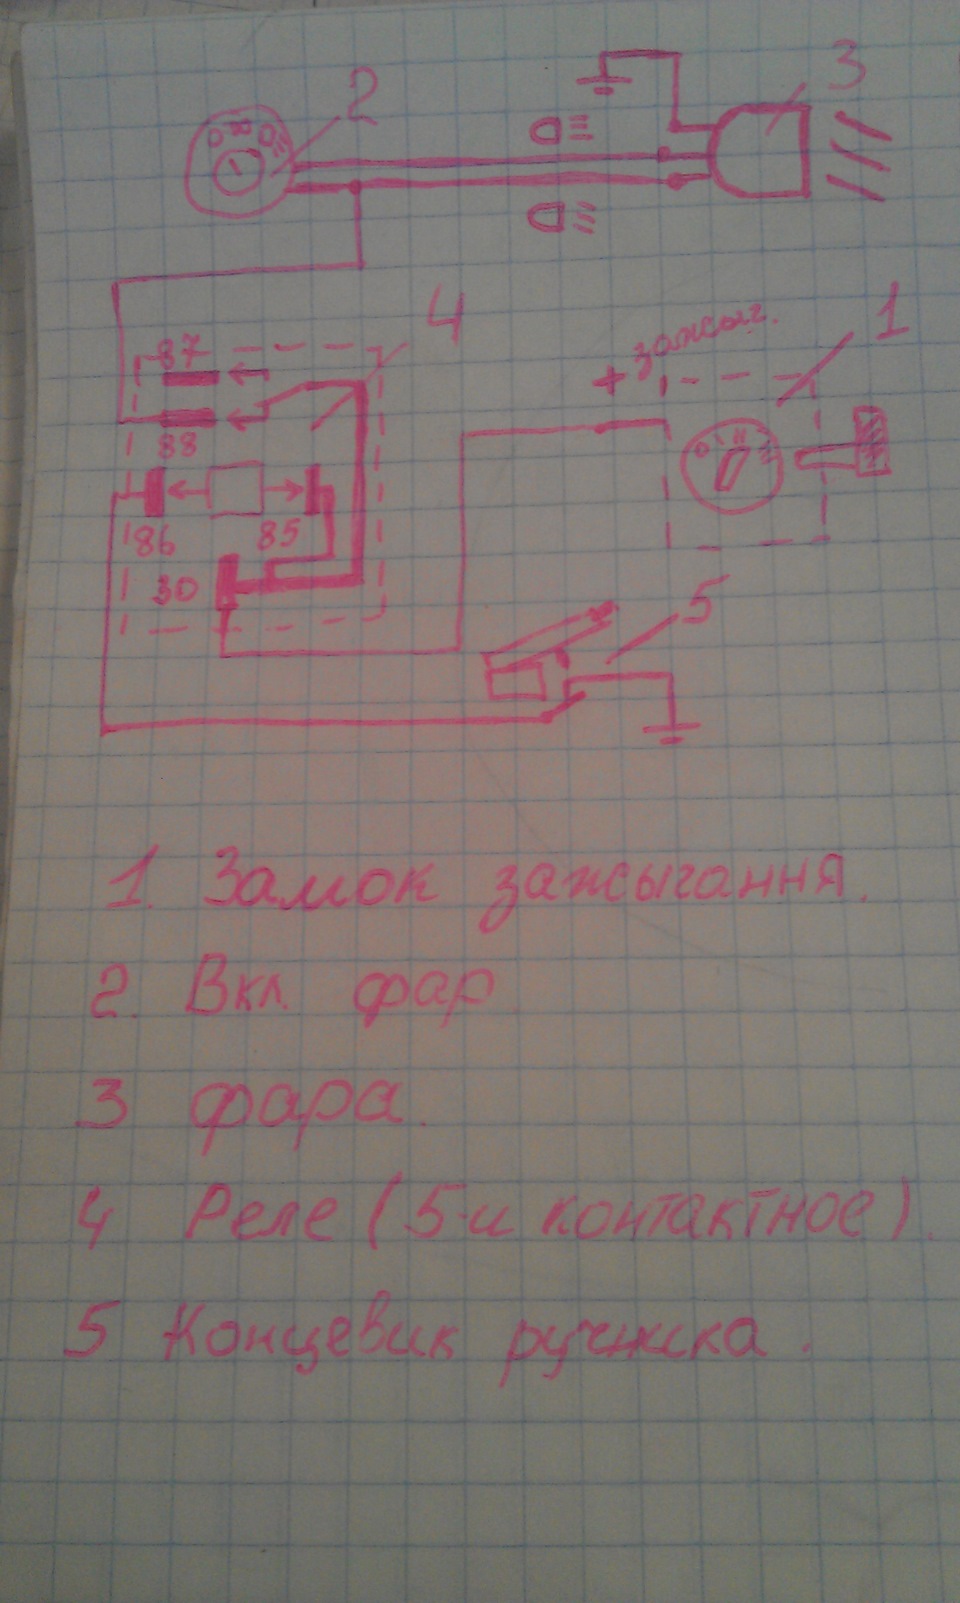 2
3
4
87
88
86
85
30
+ зажыг.
1
5
1. Замок зажыгання.
2. Вкл. фар
3 фара.
4 Реле (5-и контактное).
5 Концевик ручніка.